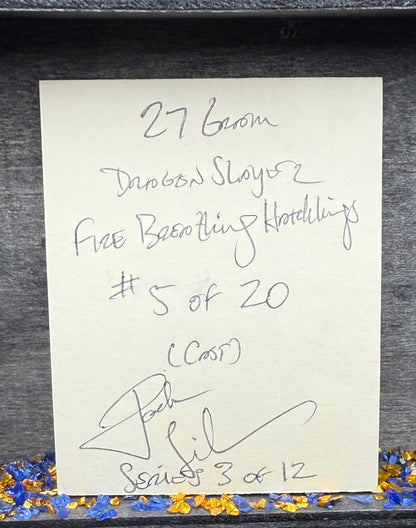 27 Gram
Dragon Slayer 2
Fire Breathing Hatchlings
# 5 of 20
(Cast)
Series 3 of 12